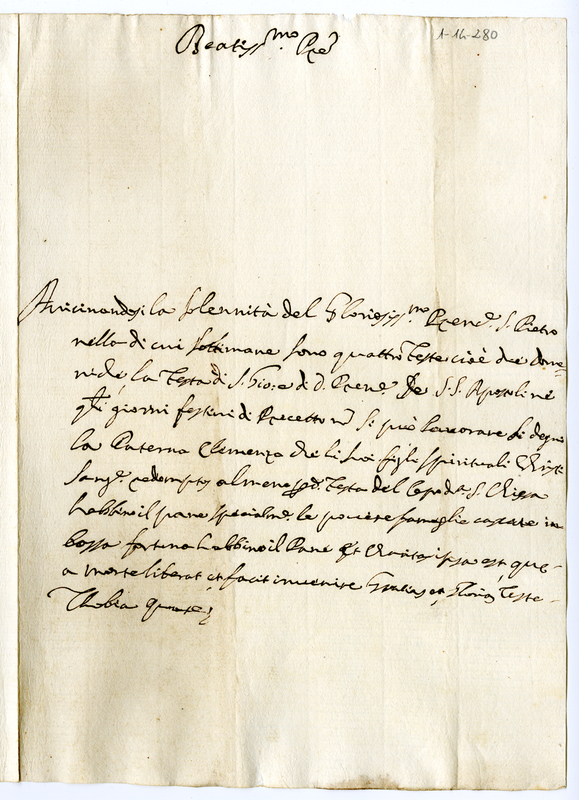 Beatiss.mo Pre
1-16-280
Avicinandosi la solennità del Gloriosiss.mo Prene. S. Pietro
nella di cui settimane sono quattro feste cioè due dome=
niche, la festa di S. Gio: e di d. Prene. De S.S. Apostoli ne
gli giorni festivi di Precetto nõ si può lavorare si degni
la Paterna Clemenza che li suoi figli spirituali Christi
sang.e redemptos almeno p d.a festa del Capo d.a S. Chiesa
habbino il pane specialm.e le povere famiglie cascate in
bassa fortuna habbino il Pane Et Charitas ipsa est que
a morte liberat et facit invenire Gratias et Gloriã Teste
Thobia